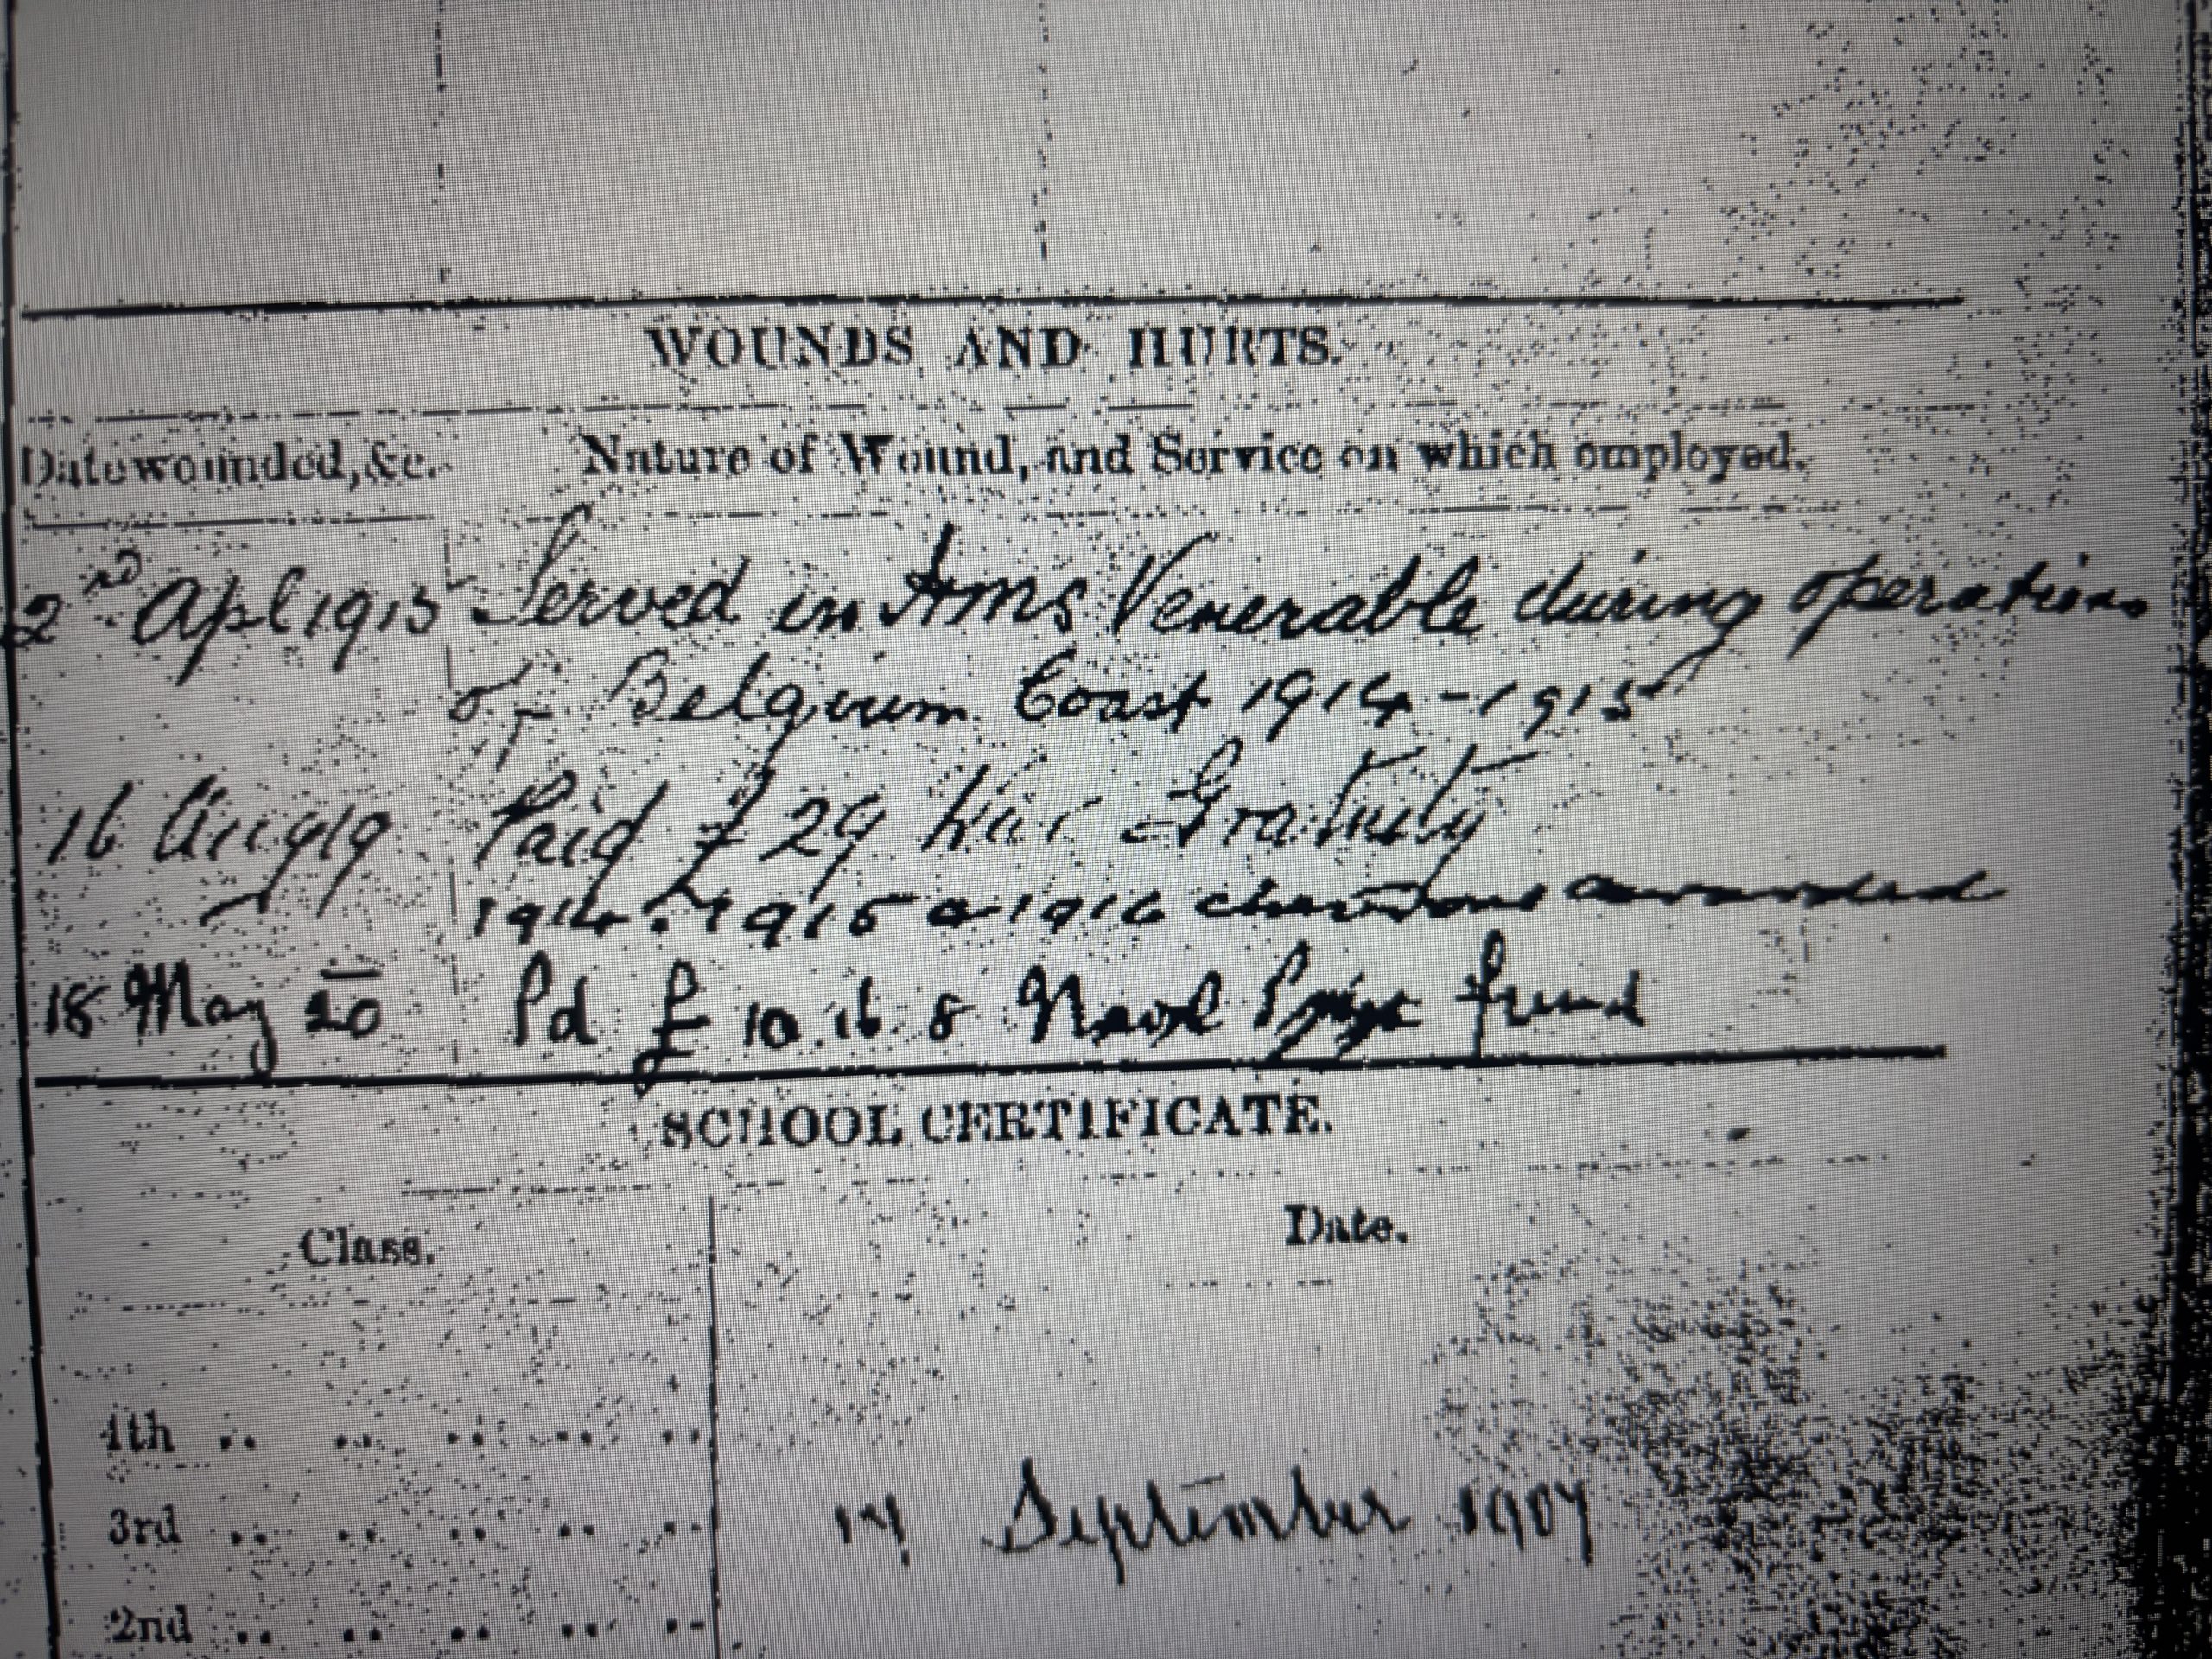 WOUNDS AND HURTS.
Date wounded, &c. Nature of Wound, and Service on which employed.
2nd Apl 1915 Served in Hms Venerable during operations
of Belgium Coast 1914-1915
16 Aug 19 Paid £ 29 War Gratuity
1914. 1915 & 1916 chevrons awarded
18 May 20 Pd £ 10.16.8 Naval Prize fund
SCHOOL CERTIFICATE.
Class. Date.
4th .. .. .. .. ..
3rd .. .. .. .. .. 17 September 1907
2nd .. .. .. .. ..